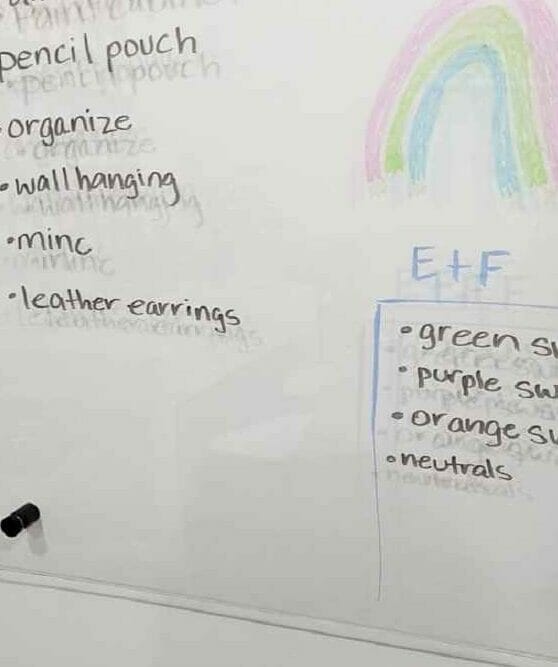 pencil pouch
• organize
• wall hanging
• minc
• leather earrings
E + F
• green
• purple
• orange
• neutrals